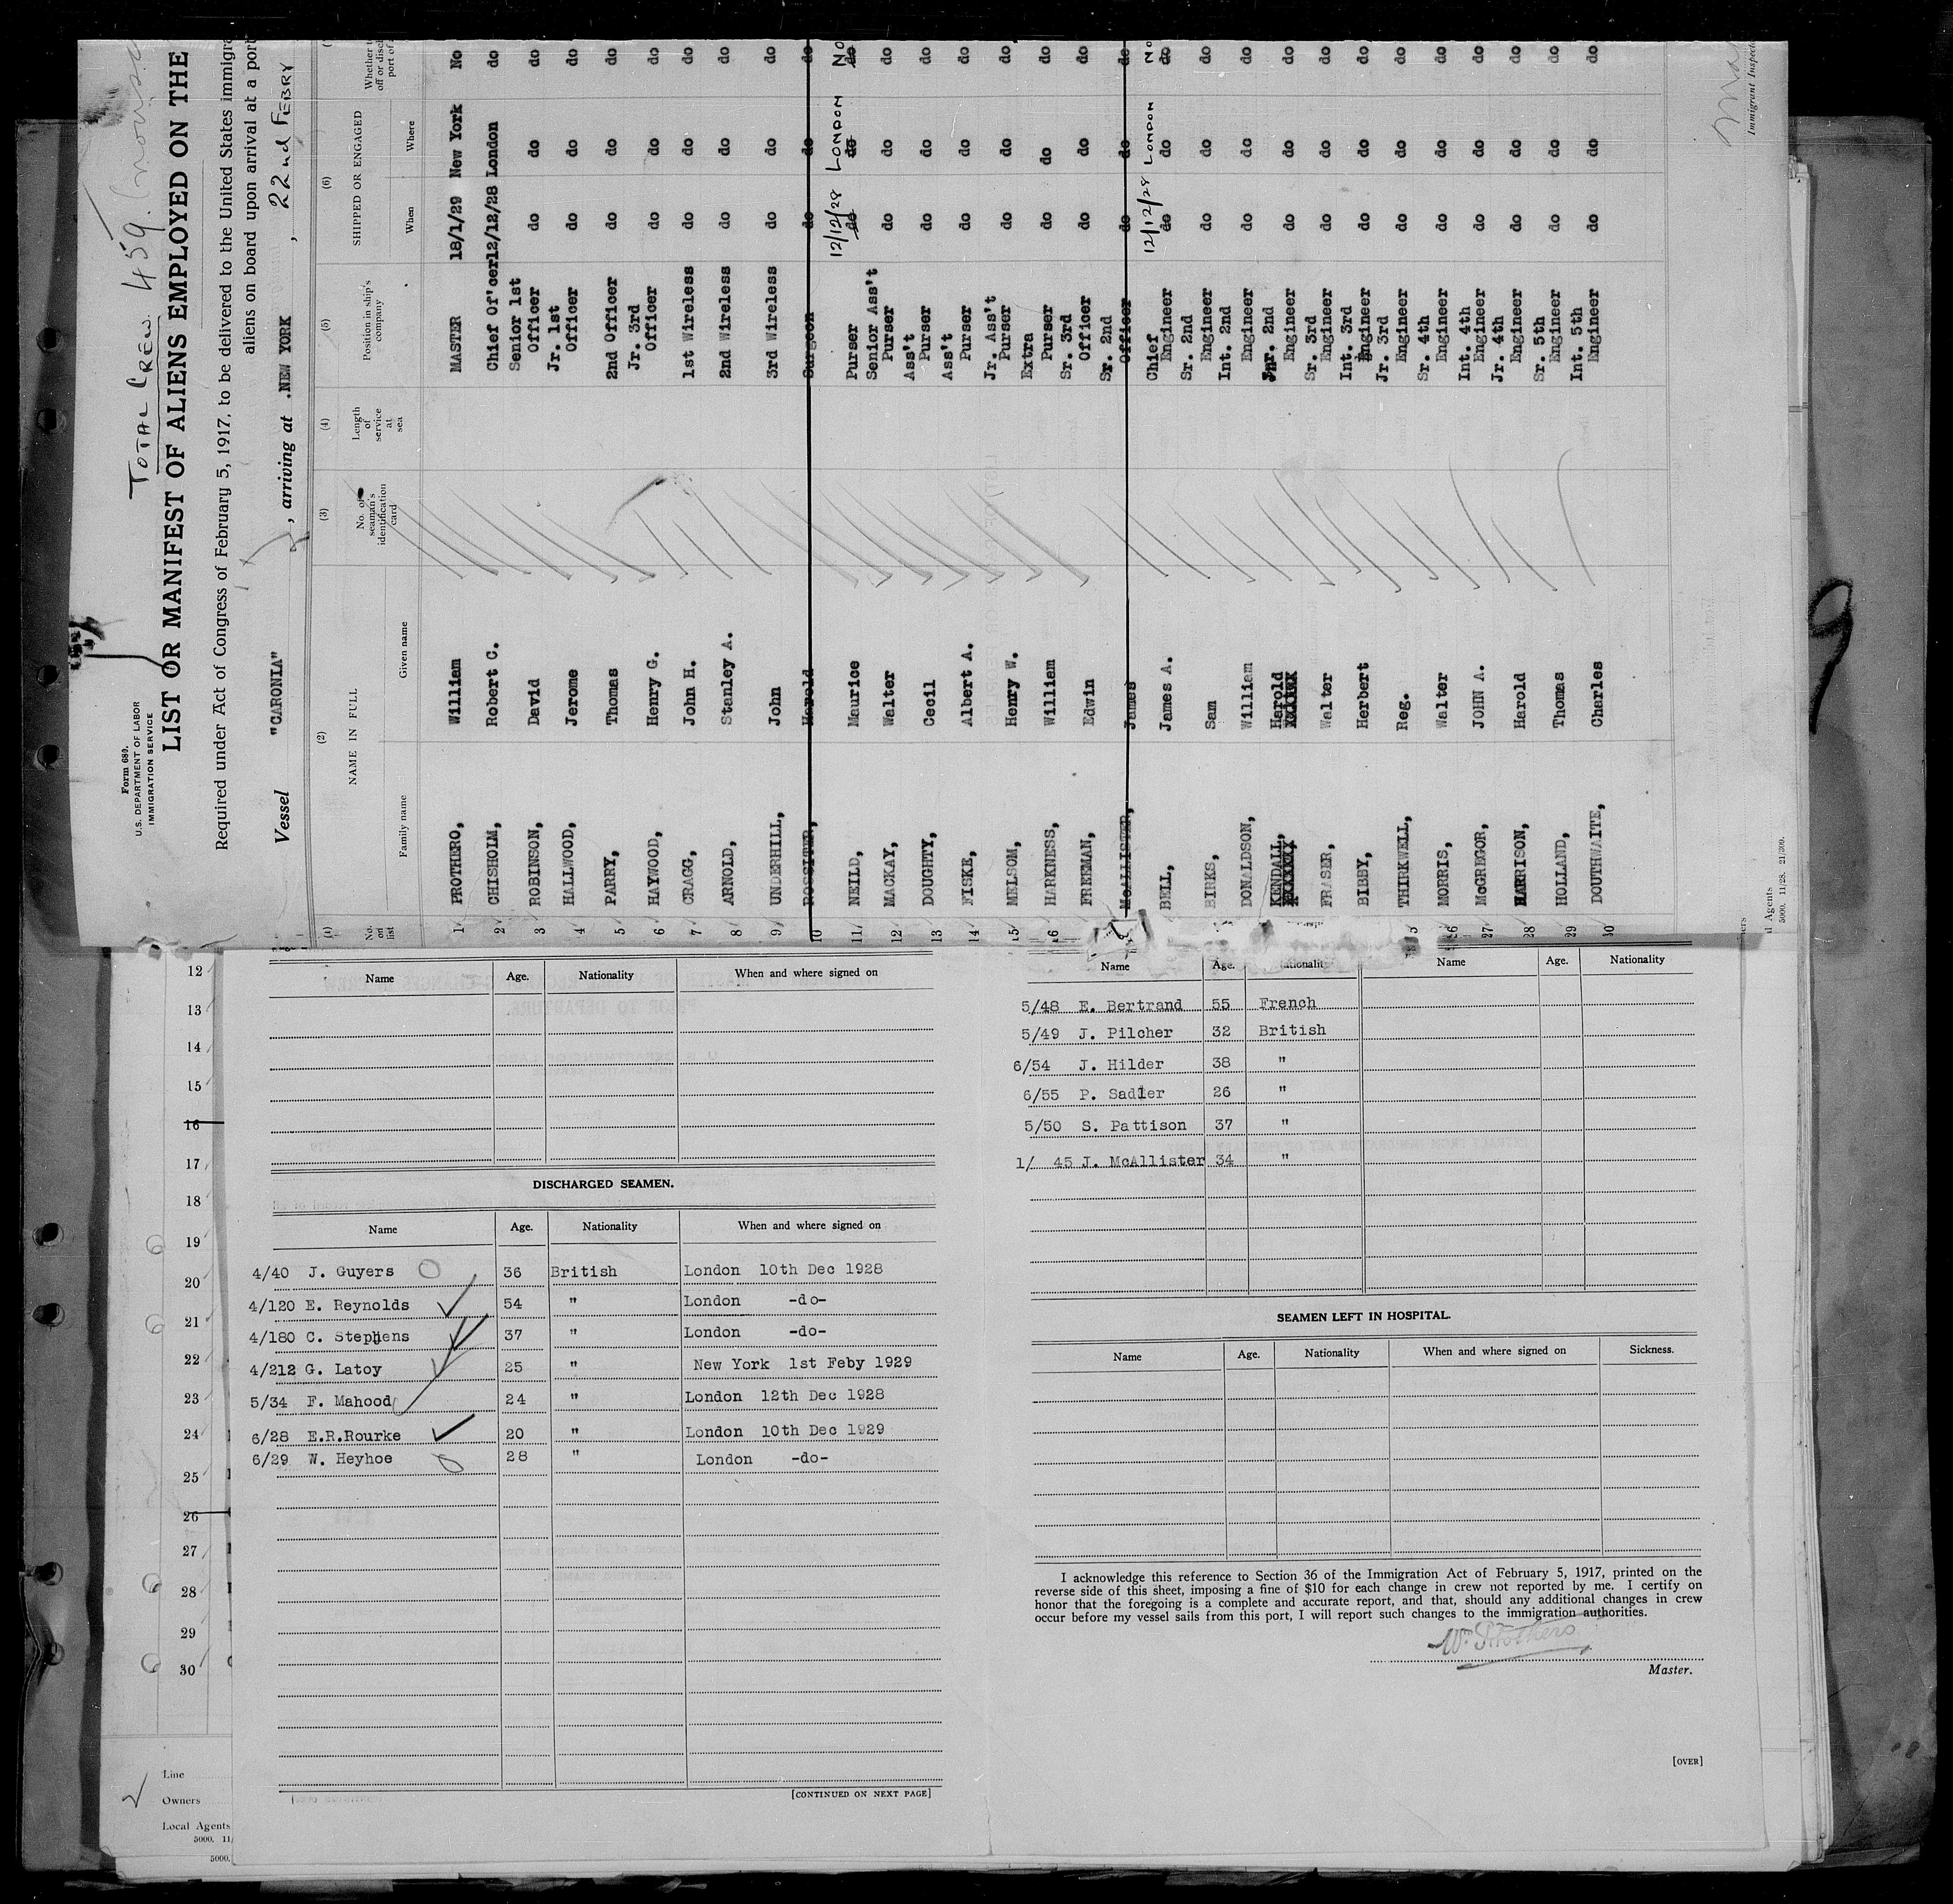 TOTAL CREW 459.
Form 689.
U.S. DEPARTMENT OF LABOR
IMMIGRATION SERVICE
LIST OR MANIFEST OF ALIENS EMPLOYED ON THE
Required under Act of Congress of February 5, 1917, to be delivered to the United States immigra
aliens on board upon arrival at a port
Vessel "CARONIA" , arriving at .NEW YORK , 22nd FEBRY
(1) (2) (3) (4) (5) (6)
No. on list NAME IN FULL No. of seaman's identification card Length of service at sea Position in ship's company SHIPPED OR ENGAGED Whether t off or disch port of a
Family name Given name When Where
1 PROTHERO, William MASTER 18/1/29 New York No
2 CHISHOLM, Robert C. Chief Of'cer 12/12/28 London do
3 ROBINSON, David Senior 1st Officer do do do
4 HALLWOOD, Jerome Jr. 1st Officer do do do
5 PARRY, Thomas 2nd Officer do do do
6 HAYWOOD, Henry G. Jr. 3rd Officer do do do
7 CRAGG, John H. 1st Wireless do do do
8 ARNOLD, Stanley A. 2nd Wireless do do do
9 UNDERHILL, John 3rd Wireless do do do
10 ROSSITER, Harold Surgeon do do do
11 NEILD, Maurice Purser do 12/12/28 do LONDON do NO
12 MACKAY, Walter Senior Ass't Purser do do do
13 DOUGHTY, Cecil Ass't Purser do do do
14 FISKE, Albert A. Ass't Purser do do do
15 MELSOM, Henry W. Jr. Ass't Purser do do do
16 HARKNESS, William Extra Purser do do do
FREEMAN, Edwin Sr. 3rd Officer do do do
McALLISTER, James Sr. 2nd Officer do do do
BELL, James A. Chief Engineer do 12/12/28 do LONDON do NO
BIRKS, Sam Sr. 2nd Engineer do do do
DONALDSON, William Int. 2nd Engineer do do do
KENDALL, Harold Jnr. 2nd Engineer do do do
FRASER, Walter Sr. 3rd Engineer do do do
BIBBY, Herbert Int. 3rd Engineer do do do
THIRKWELL, Reg. Jr. 3rd Engineer do do do
26 MORRIS, Walter Sr. 4th Engineer do do do
27 McGREGOR, JOHN A. Int. 4th Engineer do do do
28 HARRISON, Harold Jr. 4th Engineer do do do
29 HOLLAND, Thomas Sr. 5th Engineer do do do
30 DOUTHWAITE, Charles Int. 5th Engineer do do do
Immigrant Inspecto
Agents
5000. 11/28. 21/309.
9
12
13
14
15
16
17
18
19
20
21
22
23
24
25
26
27
28
29
30
Line
Owners
Local Agents
5000. 11/
5000.
Name Age. Nationality When and where signed on
DISCHARGED SEAMEN.
Name Age. Nationality When and where signed on
4/40 J. Guyers 36 British London 10th Dec 1928
4/120 E. Reynolds 54 " London -do-
4/180 C. Stephens 37 " London -do-
4/212 G. Latoy 25 " New York 1st Feby 1929
5/34 F. Mahood 24 " London 12th Dec 1928
6/28 E.R.Rourke 20 " London 10th Dec 1929
6/29 W. Heyhoe 28 " London -do-
[CONTINUED ON NEXT PAGE]
Name Age. Nationality Name Age. Nationality
5/48 E. Bertrand 55 French
5/49 J. Pilcher 32 British
6/54 J. Hilder 38 "
6/55 P. Sadler 26 "
5/50 S. Pattison 37 "
1/ 45 J. McAllister 34 "
SEAMEN LEFT IN HOSPITAL.
Name Age. Nationality When and where signed on Sickness.
I acknowledge this reference to Section 36 of the Immigration Act of February 5, 1917, printed on the
reverse side of this sheet, imposing a fine of $10 for each change in crew not reported by me. I certify on
honor that the foregoing is a complete and accurate report, and that, should any additional changes in crew
occur before my vessel sails from this port, I will report such changes to the immigration authorities.
Wm Prothero
Master.
[OVER]